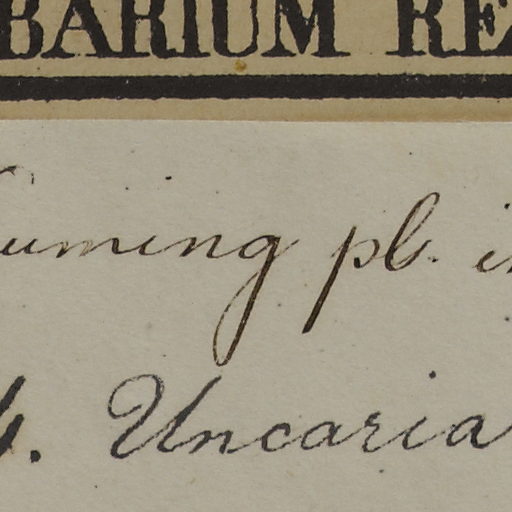 BARIUM RE
Cuming pl. i
4. Uncaria